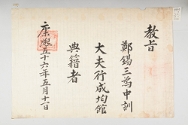 教旨
鄭錫三爲中訓
大夫行成均館
典籍者
康熙五十六年五月十日